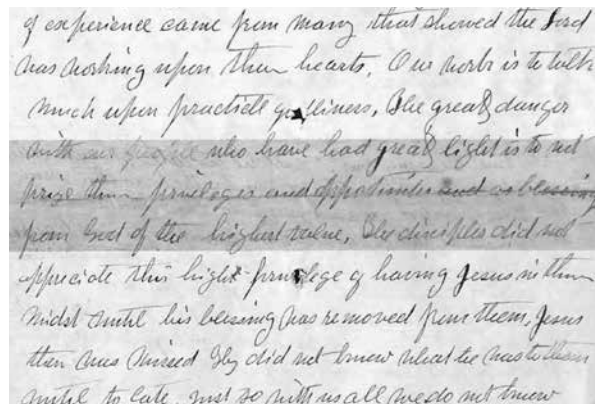 of experience came from many that showed the Lord
was working upon their hearts. Our work is to talk
much upon practicle godliness, The great danger
with our people who have had great light is to not
prize their privileges and oppotunities and as blessing
from God of the highest value, The disciples did not
appreciate this high privelege of having Jesus in their
midst until his blessing was removed from them, Jesus
then was missed They did not know what he was to them
until to late. Just so with us all we do not know